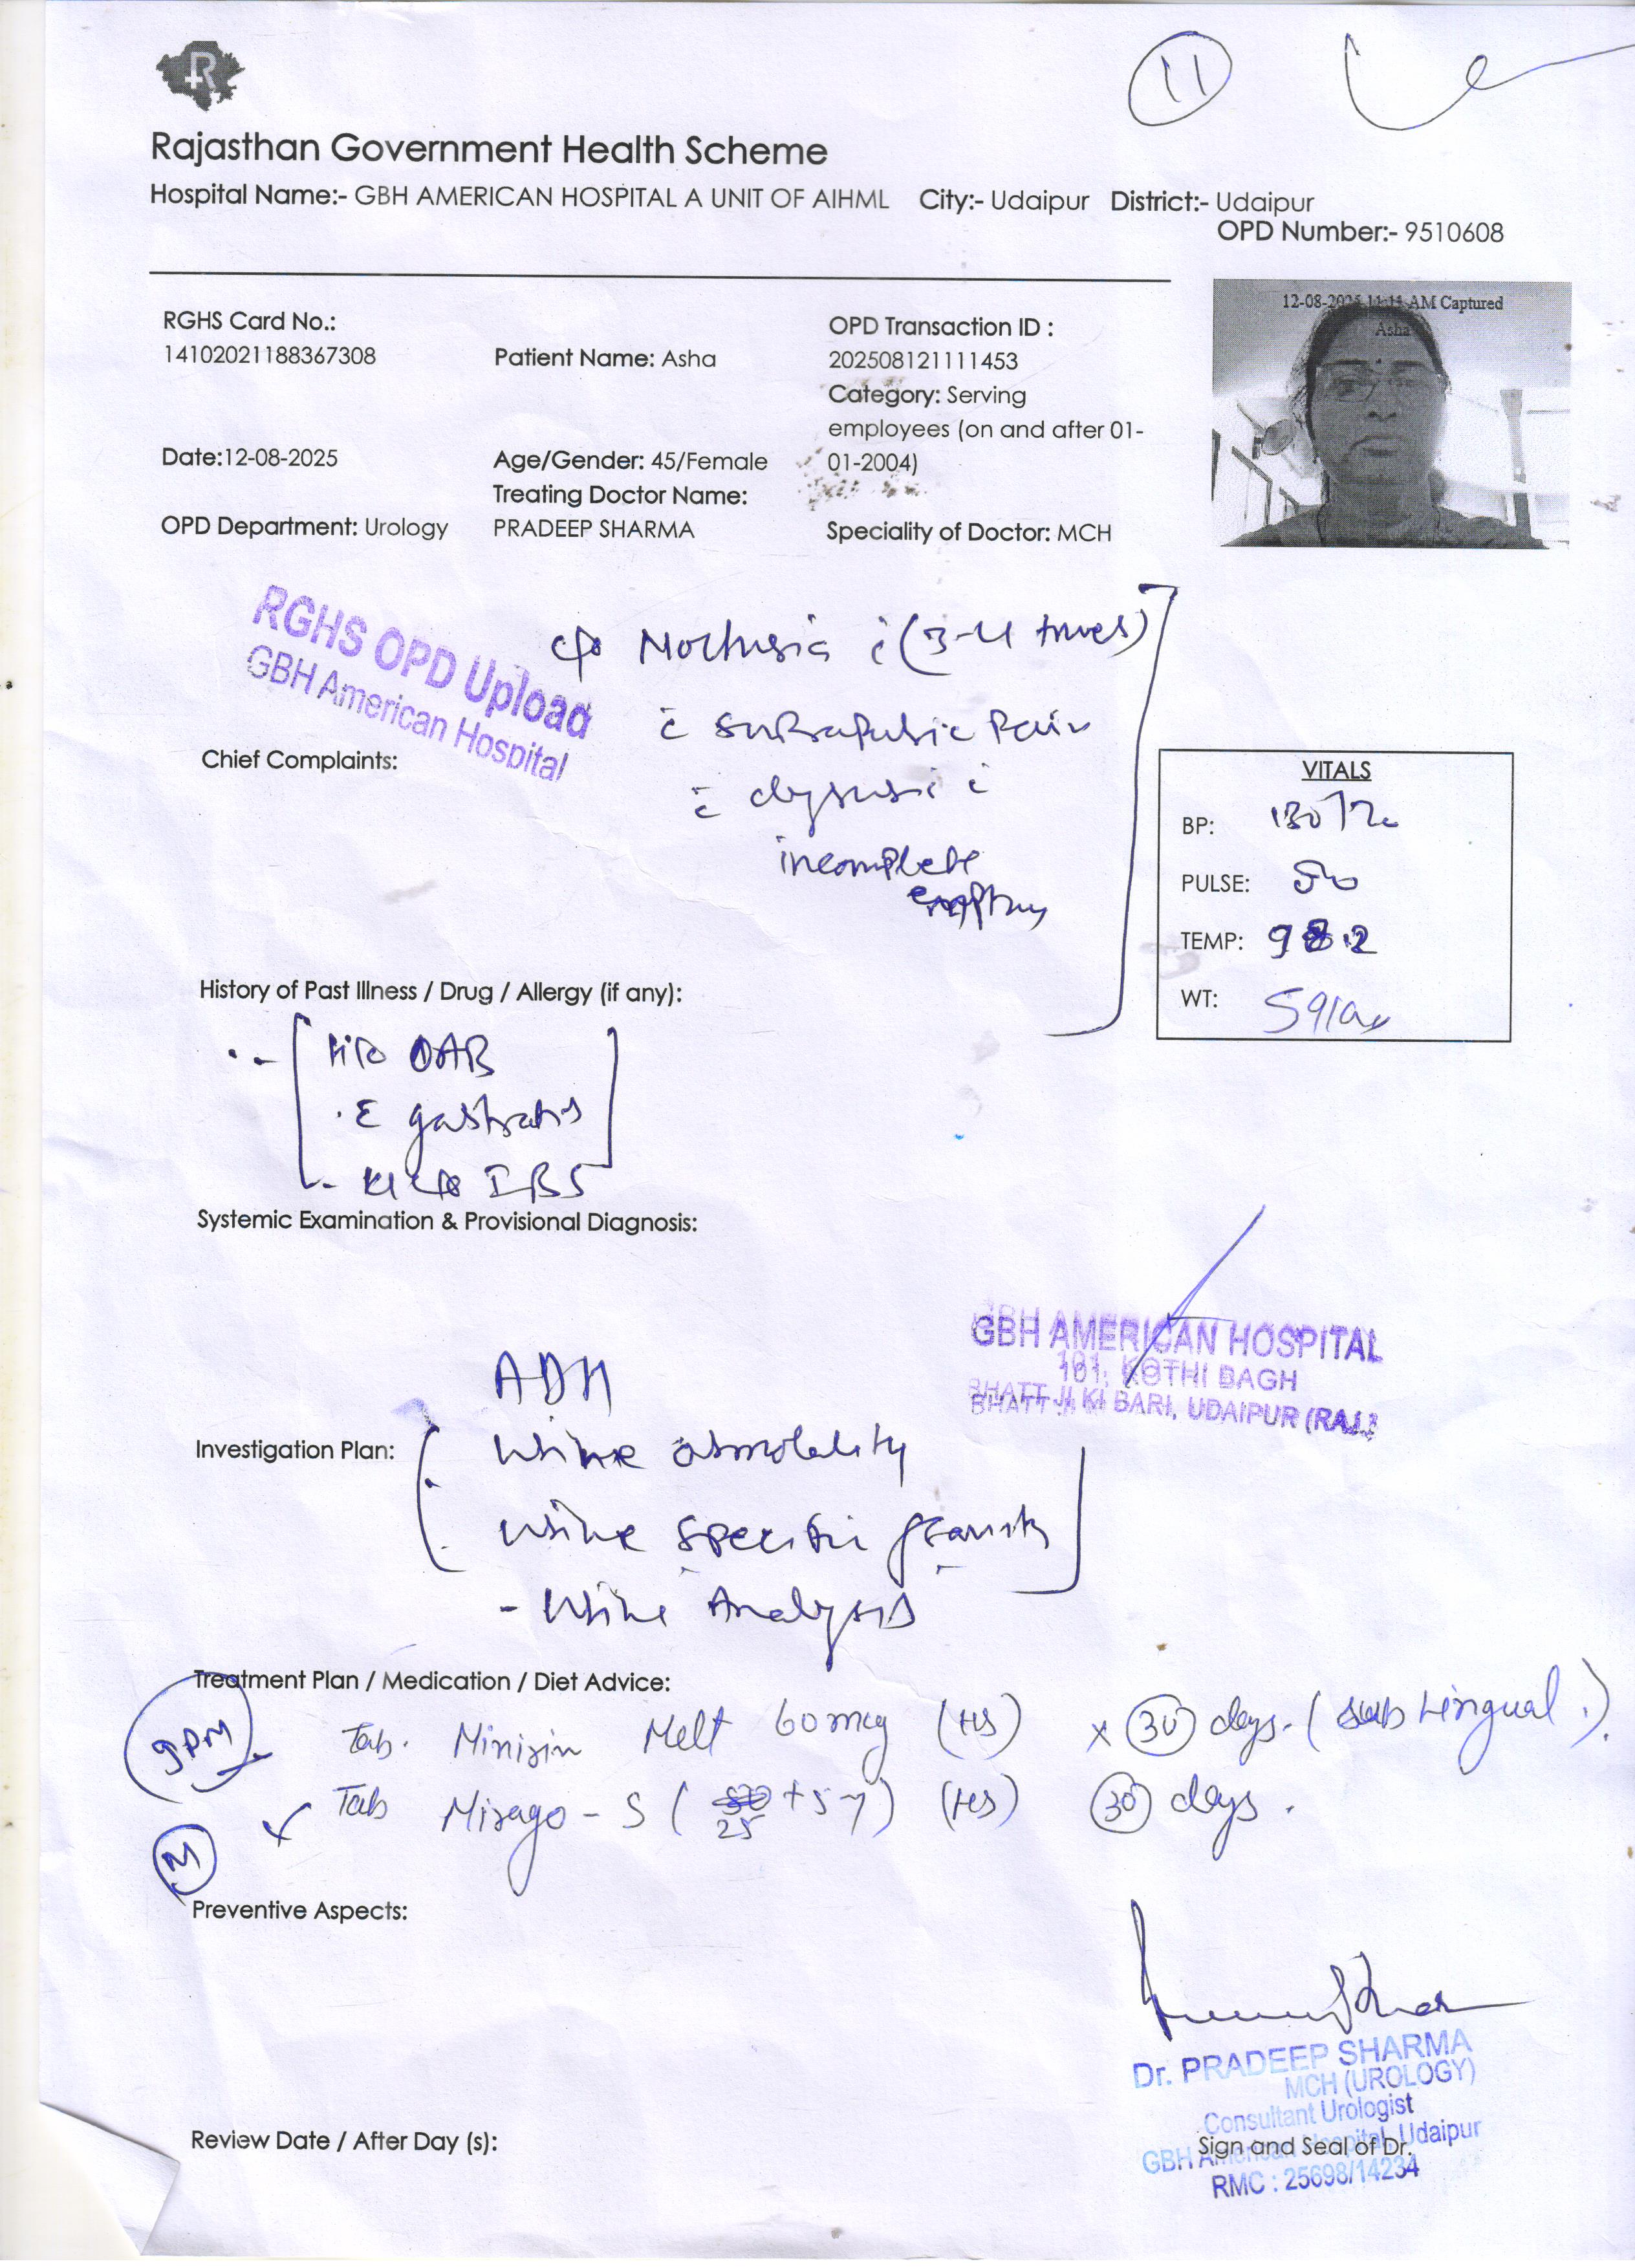 11
Rajasthan Government Health Scheme
Hospital Name:- GBH AMERICAN HOSPITAL A UNIT OF AIHML City:- Udaipur District:- Udaipur
OPD Number:- 9510608
12-08-2025 11:11 AM Captured
Asha
RGHS Card No.:
14102021188367308
Patient Name: Asha
OPD Transaction ID :
202508121111453
Category: Serving
employees (on and after 01-
01-2004)
Date:12-08-2025
Age/Gender: 45/Female
Treating Doctor Name:
PRADEEP SHARMA
OPD Department: Urology
Speciality of Doctor: MCH
RGHS OPD Upload
GBH American Hospital
c/o Nocturia c̄ (3-4 times)
c̄ suprapubic pain
c̄ dysuria c̄
incomplete
emptying
Chief Complaints:
VITALS
BP: 130/72
PULSE:
TEMP: 98.2
WT: 59
History of Past Illness / Drug / Allergy (if any):
H/o OAB
c̄ gastratis
K/c/o IBS
Systemic Examination & Provisional Diagnosis:
GBH AMERICAN HOSPITAL
101, KOTHI BAGH
BHATT JI KI BARI, UDAIPUR (RAJ.)
ADH
Investigation Plan:
Urine osmolality
Urine specific gravity
- Urine Analysis
Treatment Plan / Medication / Diet Advice:
9PM Tab. Minirin Melt 60 mcg (HS) x 30 days. (sub Lingual.)
M Tab Mirago-S (25 + 5 ) (HS) 30 days.
Preventive Aspects:
Dr. PRADEEP SHARMA
MCH (UROLOGY)
Consultant Urologist
GBH American Hospital, Udaipur
RMC : 25698/14234
Review Date / After Day (s):
Sign and Seal of Dr.